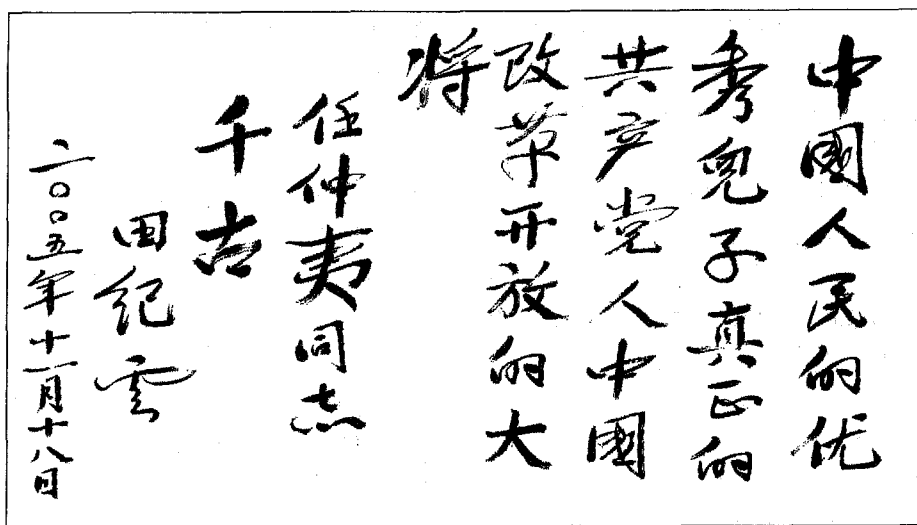 中國人民的优
秀兒子真正的
共产党人中國
改革开放的大
将
任仲夷同志
千古
田紀雲
二〇〇五年十一月十八日